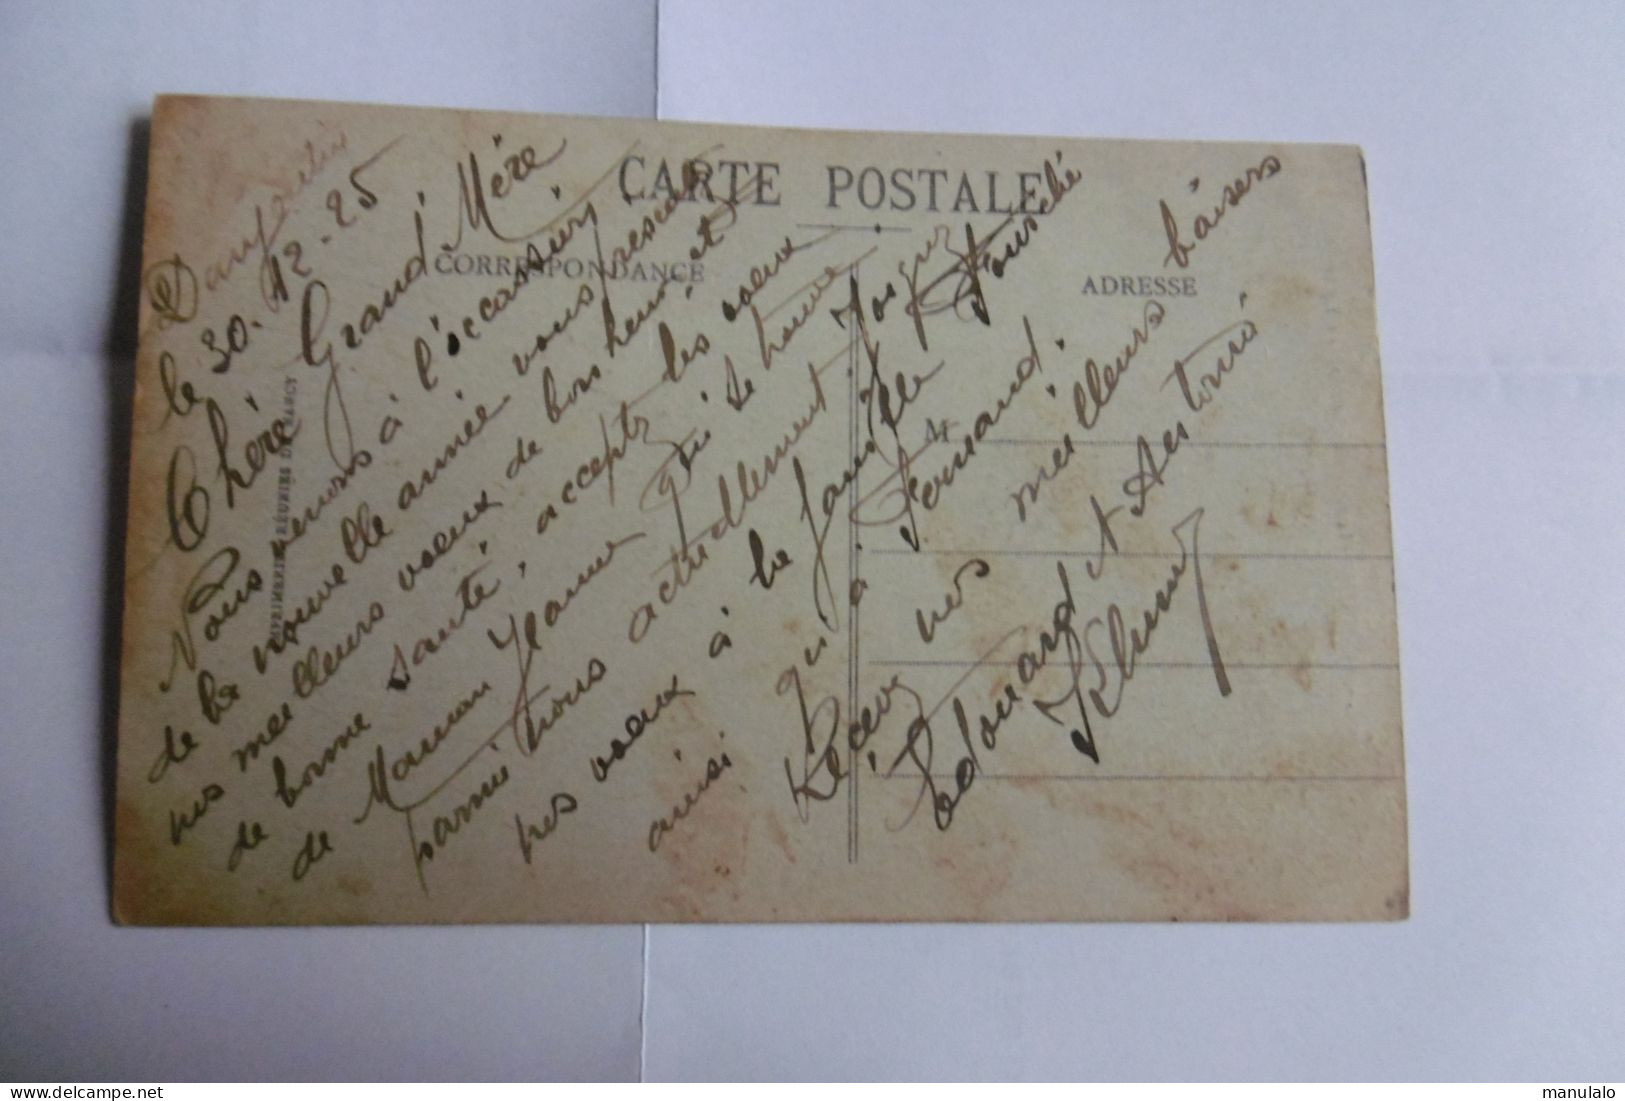 CARTE POSTALE
CORRESPONDANCE
ADRESSE
M
IMPRIMERIES RÉUNIES DE NANCY
le 30-12-25
Chère Grand' Mère
Nous venons à l'occasion
de la nouvelle année vous présenter
nos meilleurs voeux de bonheur et
de bonne santé, acceptez les voeux
de Maman Jeanne qui se trouve
parmi nous actuellement.
nos voeux à la famille
ainsi qui à
Recevez nos meilleurs baisers
Edouard et
manulalo